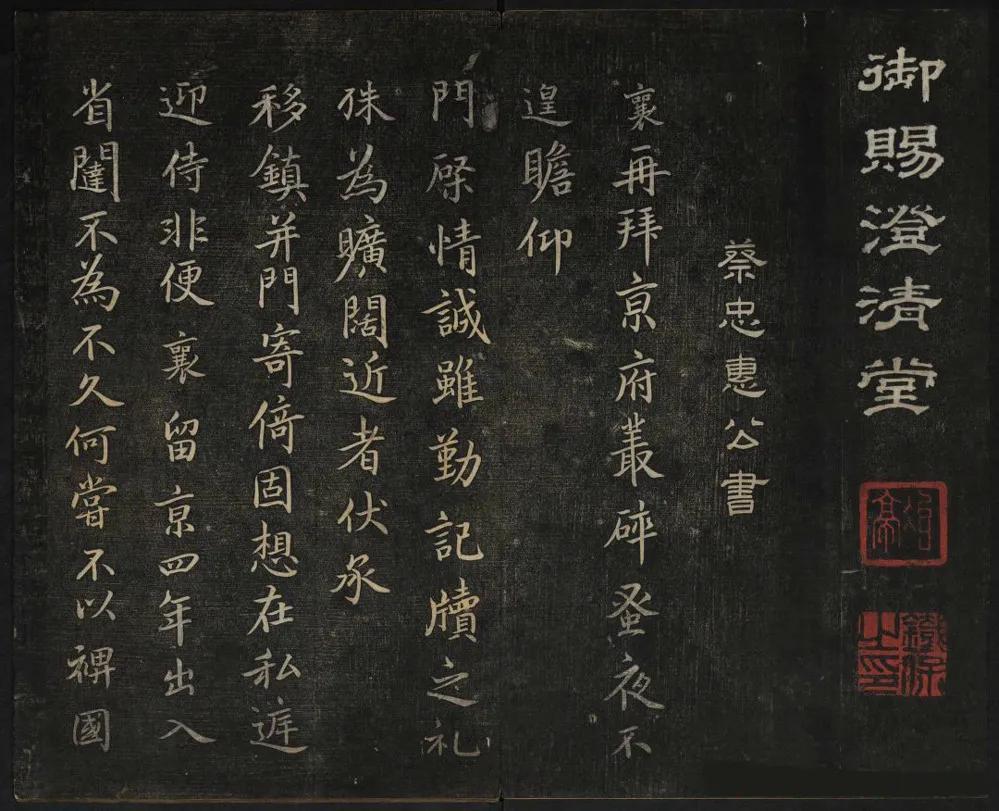 御賜澄清堂
蔡忠惠公書
襄再拜京府叢碎蚤夜不
遑瞻仰
門屏情誠雖勤記牘之礼
殊為曠闊近者伏承
移鎮并門寄倚固想在私遽
迎侍非便襄留京四年出入
省闥不為不久何嘗不以裨國
鐵保之印